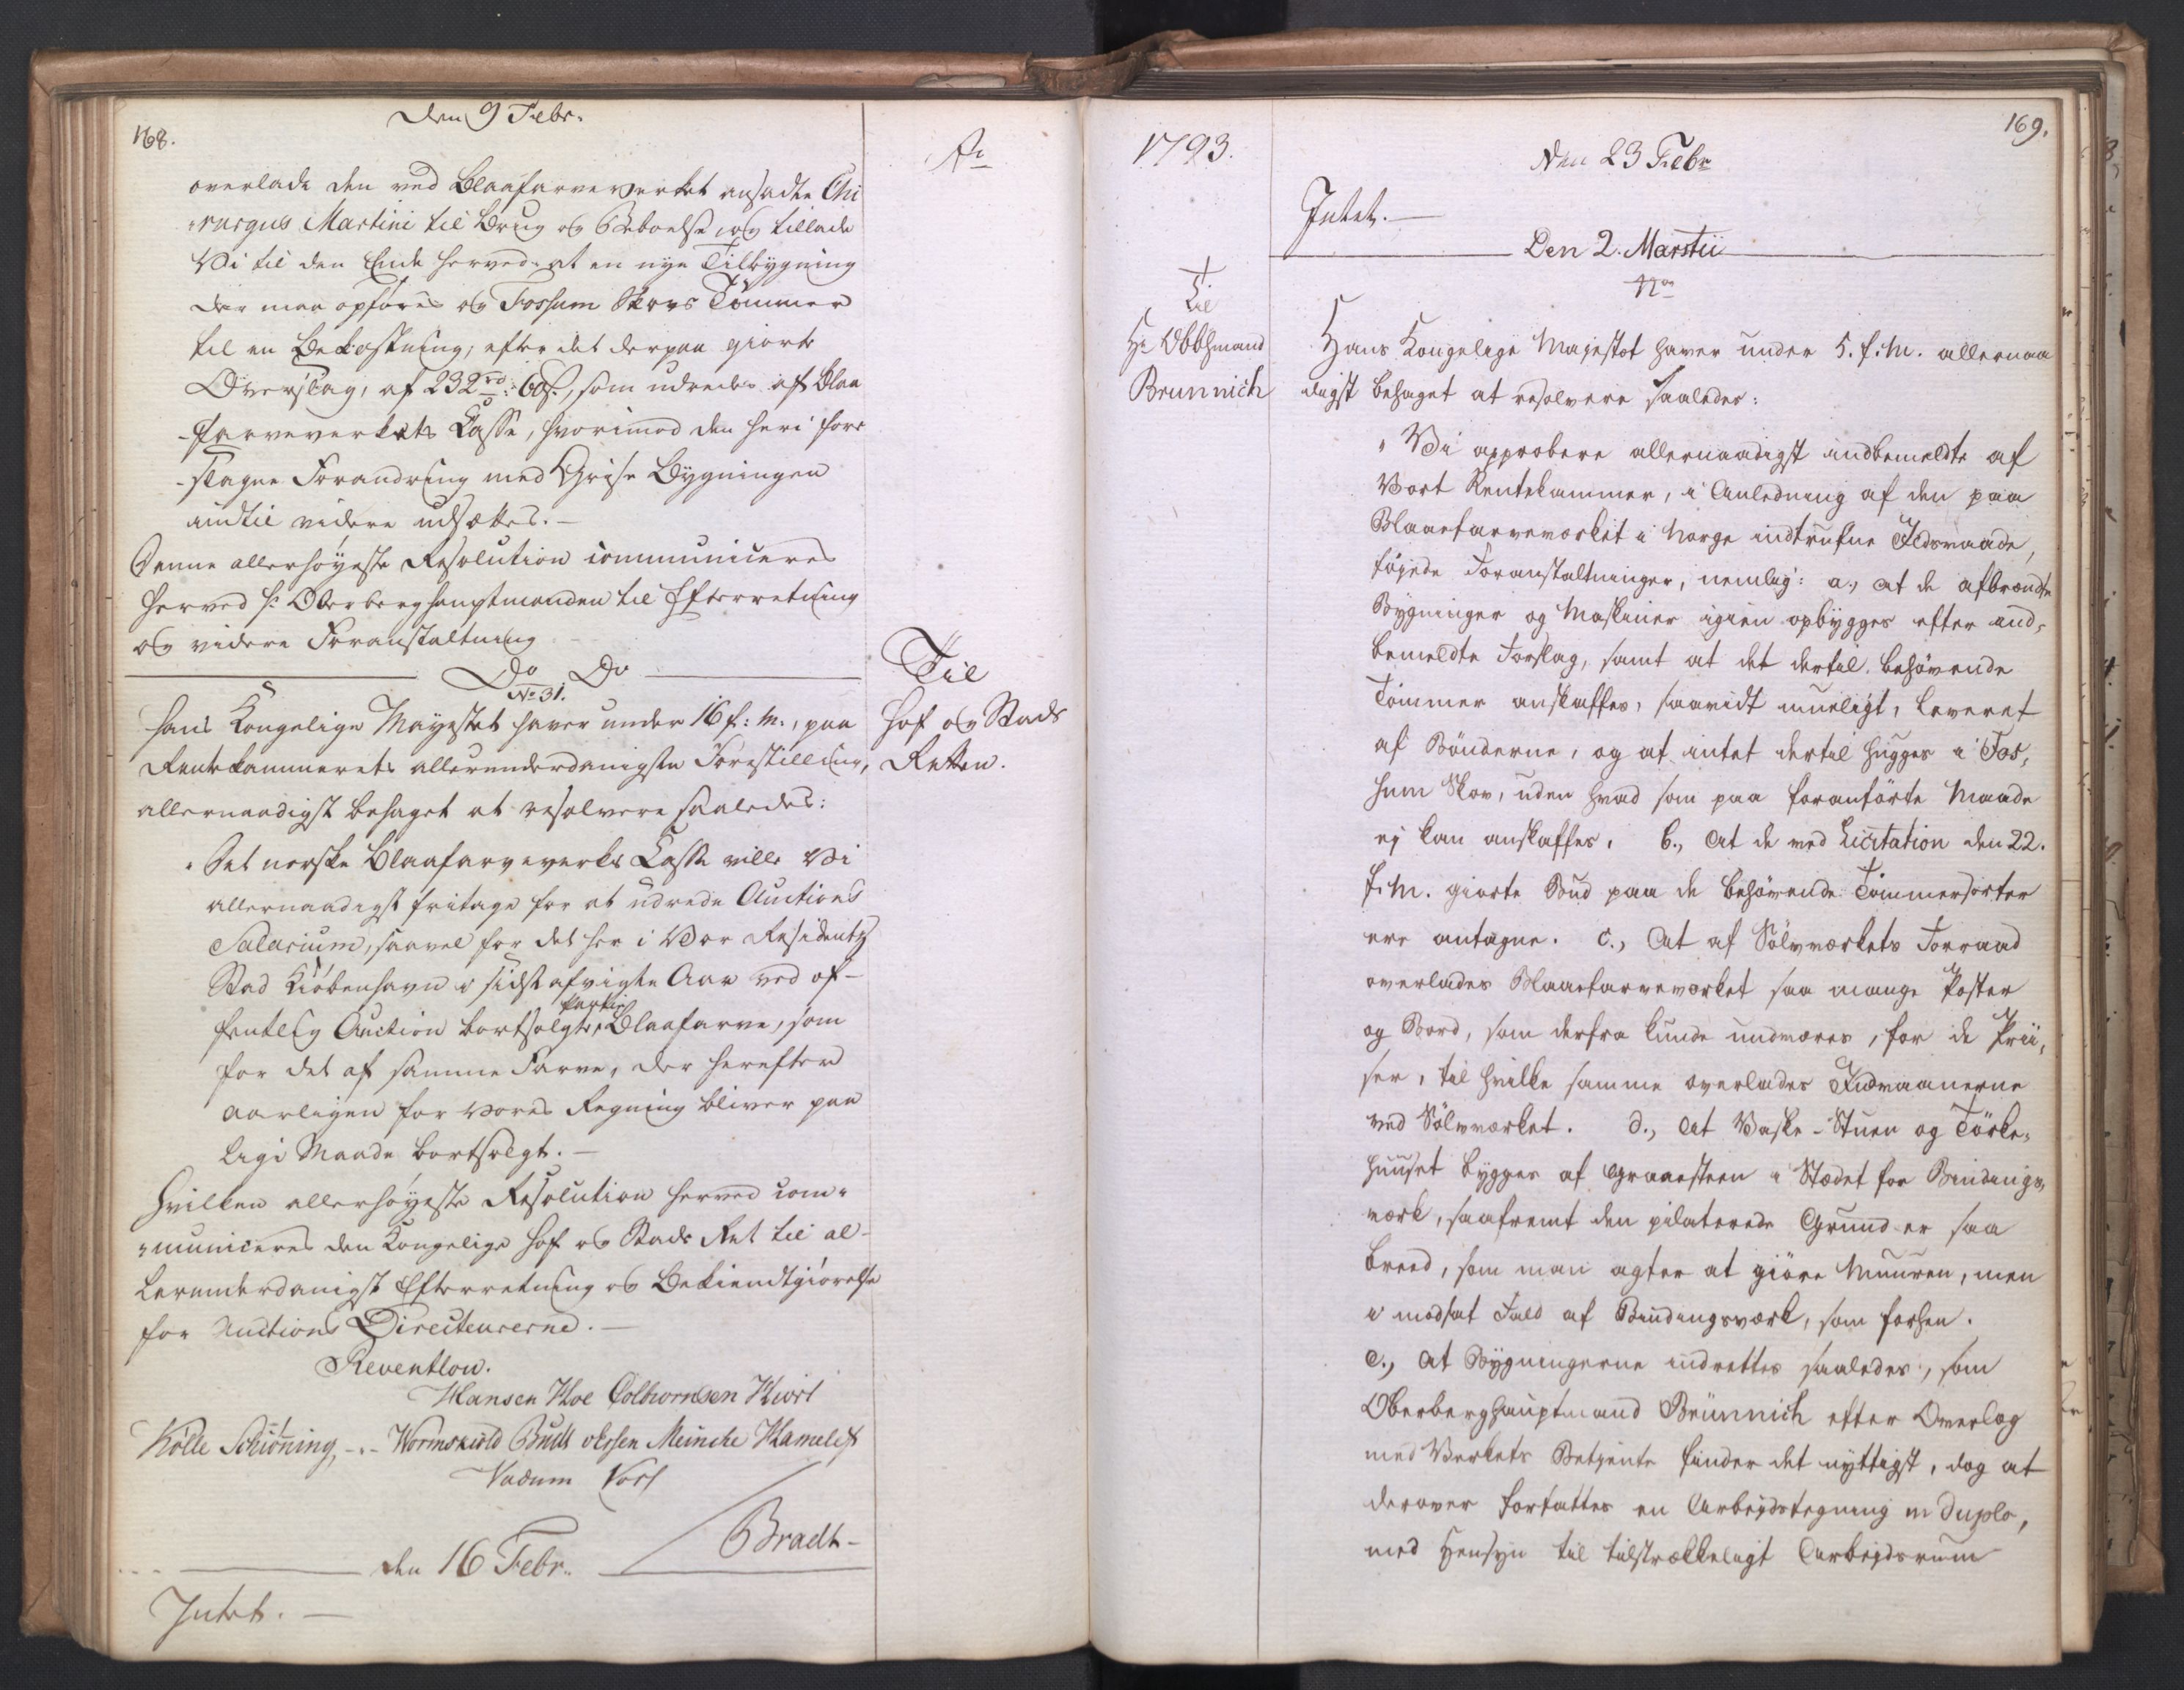 168.
Den 9 Febr.
Ao
overlade den ved Blaafarveverket ansadte Chi
rurgus Martini til Brug og Beboelse, og tillade
Vi til den Ende herved at en nye Tilbygning
der maa opføres og Fossum Skovs Tømmer
til en Bekostning, efter det derpaa giorte
Overslag, af 232 rd: 60 s., som udredes af Blaa
farveverkets Casse, hvorimod den heri fore
slagne Forandring med Grise Bygningen
indtil videre udsættes. —
Denne allerhøyeste Resolution communiceres
herved Hr Oberberghauptmanden til Efterretning
og videre Foranstaltning
Do Do
No 31.
Til
Hof og Stads
Retten.
Hans Kongelige Mayestet haver under 16 f: M:, paa
Rentekammerets allerunderdanigste Forestilling,
allernaadigst behaget at resolvere saaledes:
"Det norske Blaafarveverks Casse ville Vi
allernaadigst fritage for at udrede Auctions
Salarium, saavel for det her i Vor Residentz
Stad Kiøbenhavn i sidst afvigte Aar ved of-
fentlig Auction bortsolgte Partie Blaafarve, som
for det af samme Farve, der herefter
aarligen for Vores Regning bliver paa
lige Maade bortsolgt. —
Hvilken allerhøyeste Resolution herved com-
municeres den Kongelige Hof og Stads Ret til al-
lerunderdanigst Efterretning og Bekiendtgiørelse
for Auctions Directeurerne. —
Reventlow.
Hansen Hoe Colbiornsen Hiort
Kölle Schiönning, -.- Wormskiold Bull v Essen Meincke Kamelest
Vadum Vors
Bradt-
den 16 Febr.
Intet. —
1793.
169.
Den 23 Febr
Intet. —
Den 2. Martii
No
Til
Hr Obbhmand
Brunnich
Hans Kongelige Majestæt haver under 5. f. M. allernaa
digst behaget at resolvere saaledes:
"Vi approbere allernaadigst indbemeldte af
Vort Rentekammer, i Anledning af den paa
Blaaefarveværket i Norge indtrufne Ildsvaade,
føjede Foranstaltninger, nemlig: a., at de afbrændte
Bygninger og Maskiner igien opbygges efter ind-
bemeldte Forslag, samt at det dertil behøvende
Tømmer anskaffes, saavidt mueligt, leveret
af Bønderne, og at intet dertil hugges i Fos-
sum Skov, uden hvad som paa foranførte Maade
ej kan anskaffes. b., At de ved Licitation den 22.
f. M. giorte Bud paa de behøvende Tømmersorter
ere antagne. c., At af Sølvværkets Forraad
overlades Blaaefarveværket saa mange Poster
og Bord, som derfra kunde undværes, for de Prii-
ser, til hvilke samme overlades Indvaanerne
ved Sølvværket. d., At Vaske-Stuen og Tørke-
huuset bygges af Graaesteen i Stædet for Bindings-
værk, saafremt den pilaterede Grund er saa
breed, som man agter at giøre Muuren, men
i modsat Fald af Bindingsværk, som forhen.
e., at Bygningerne indrettes saaledes, som
Oberberghauptmand Brünnich efter Overlæg
med Verkets Betjente finder det nyttigst, dog at
derover forfattes en Arbejdstegning in duplo,
med Hensyn til tilstrækkeligt Arbejdsrum